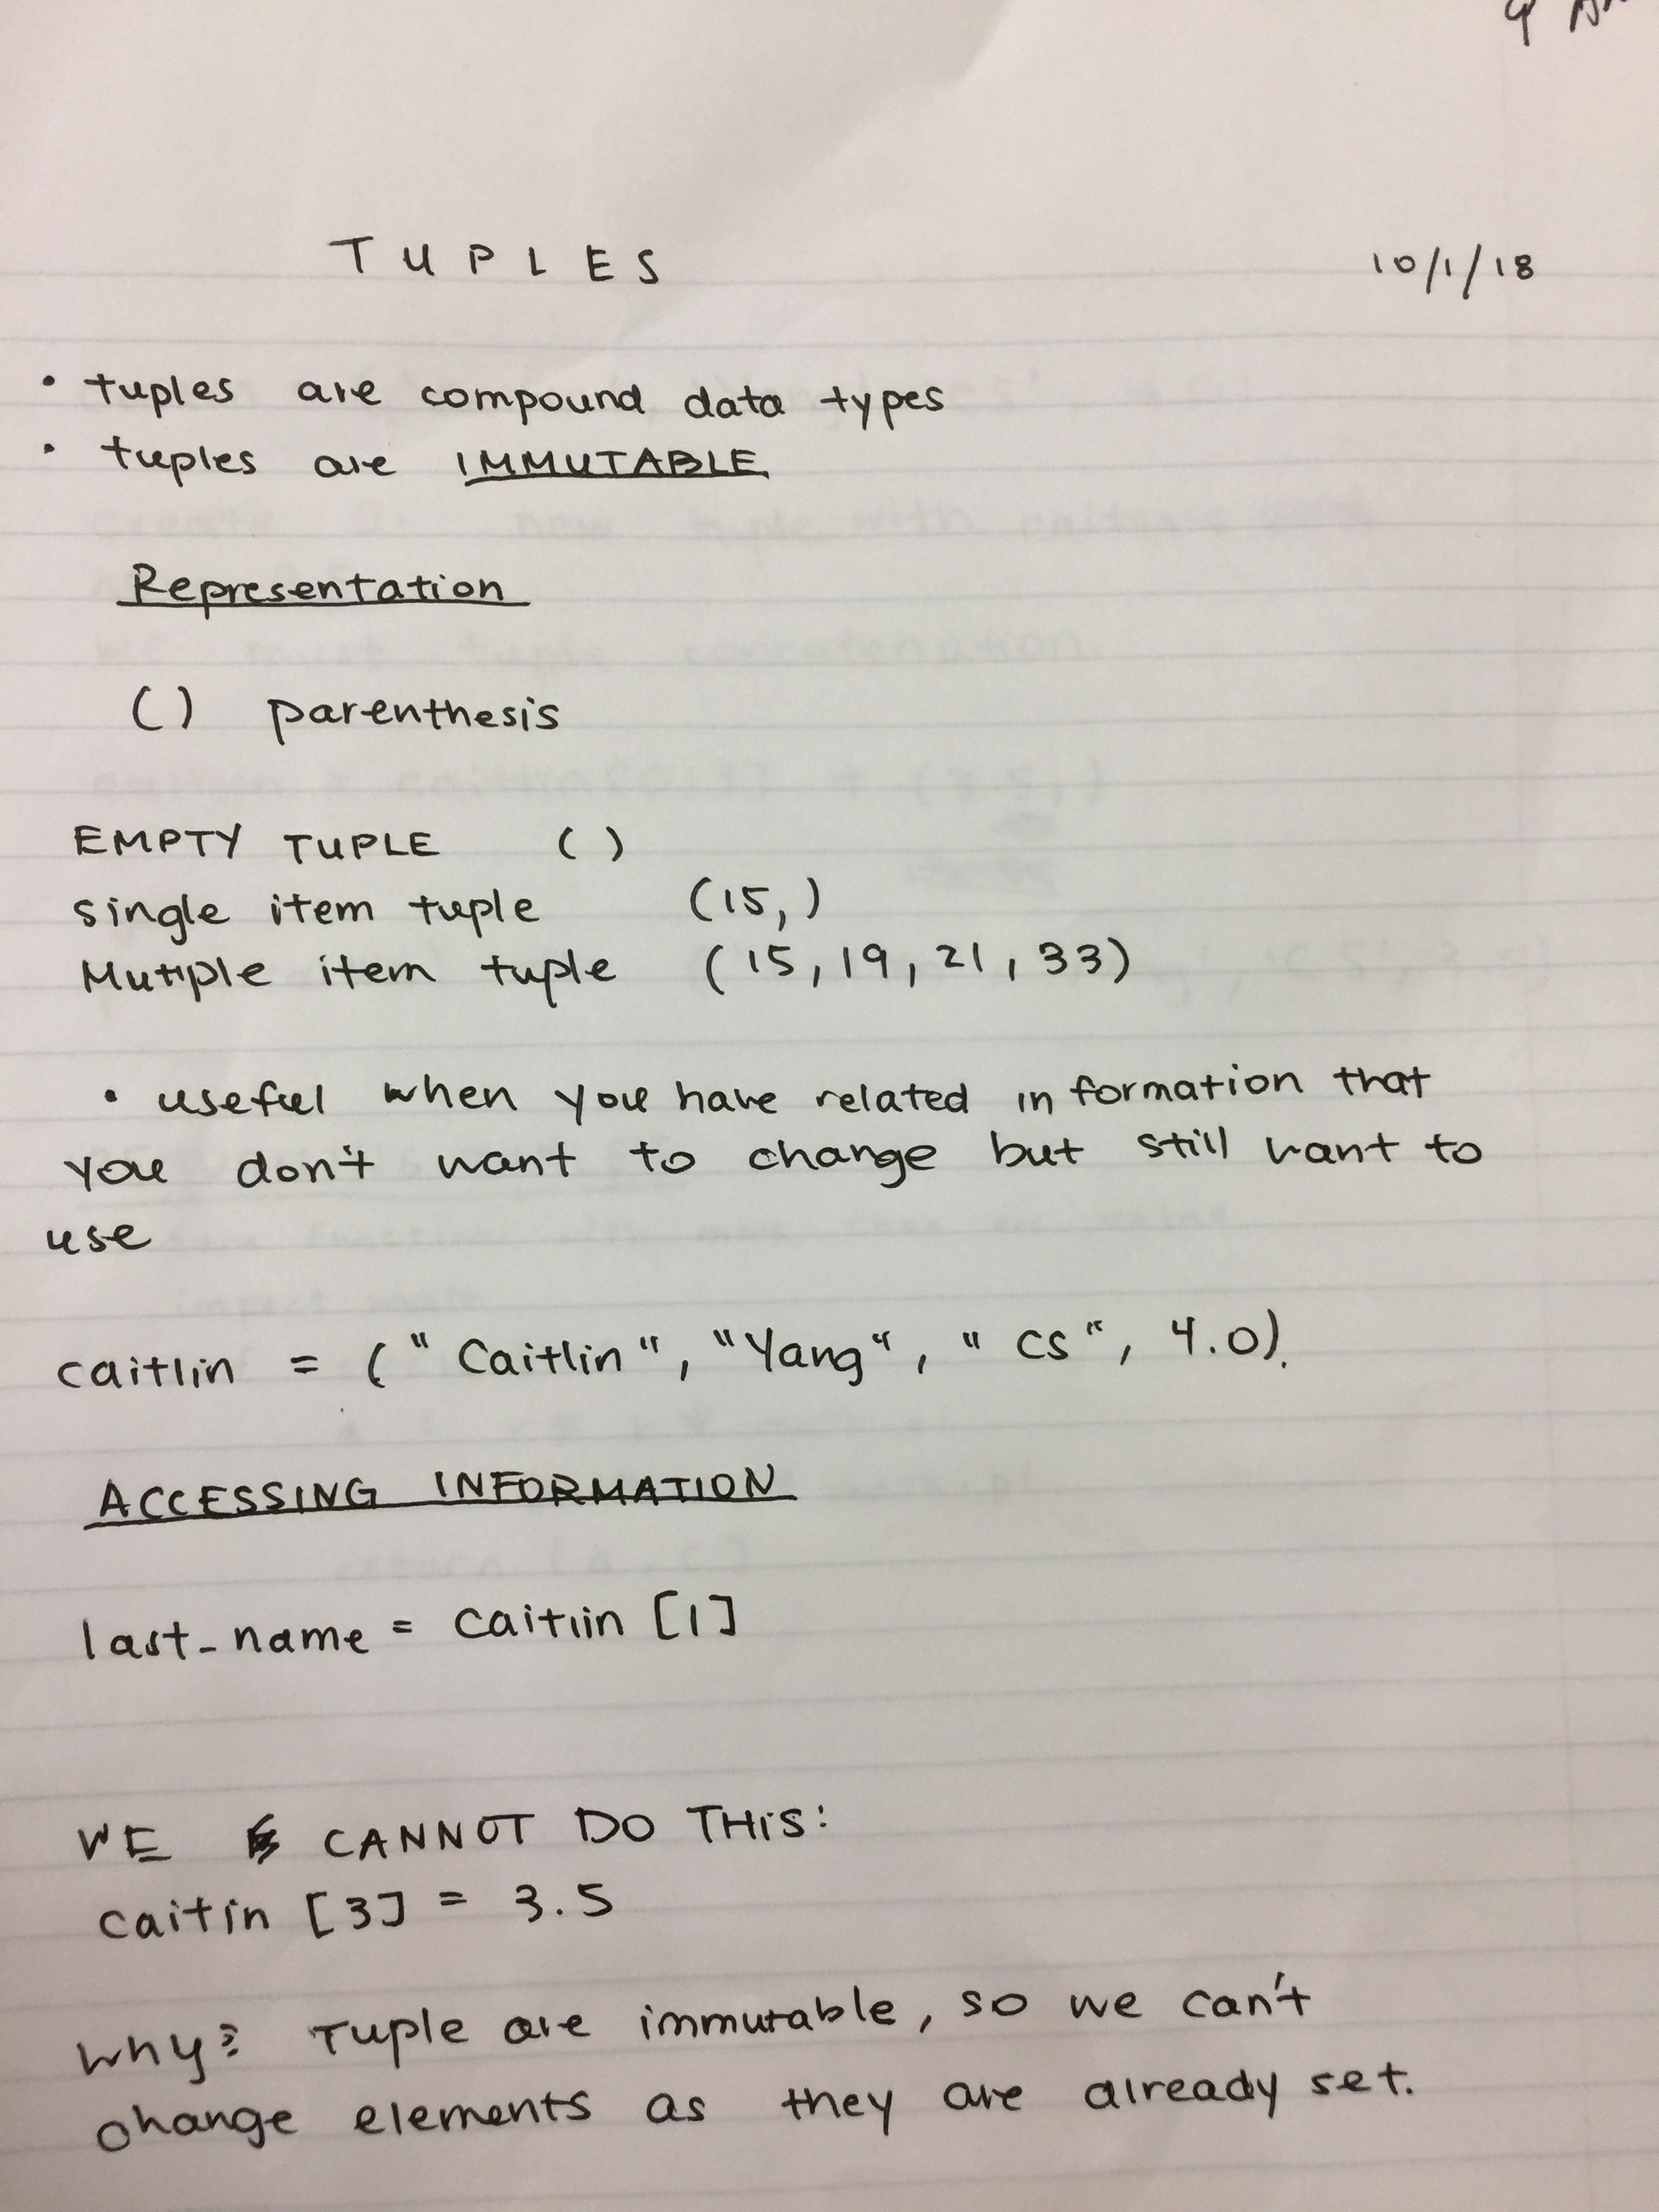 TUPLES 10/1/18
• tuples are compound data types
• tuples are IMMUTABLE
Representation
() parenthesis
EMPTY TUPLE ( )
single item tuple (15,)
Mutiple item tuple (15, 19, 21, 33)
• useful when you have related information that
you don't want to change but still want to
use
caitlin = ("Caitlin", "Yang", "CS", 4.0).
ACCESSING INFORMATION
last_name = caitlin [1]
WE CANNOT DO THIS:
caitin [3] = 3.5
Why? Tuple are immutable, so we can't
change elements as they are already set.